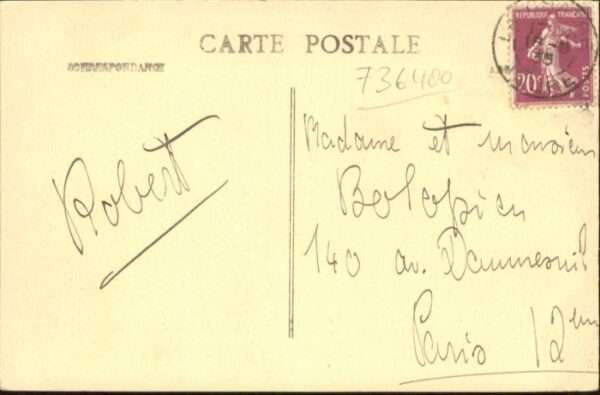 CARTE POSTALE
CORRESPONDANCE
736400
REPUBLIQUE FRANÇAISE
20c
POSTES
Robert
Madame et monsieur
140 av. Daumesnil
Paris 12em